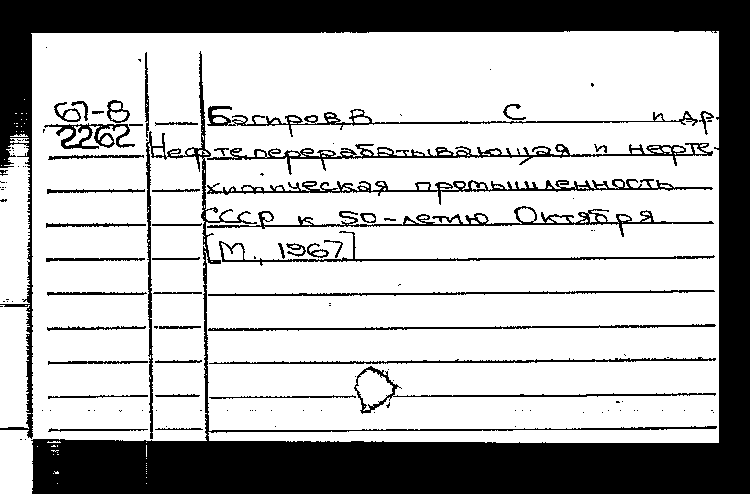 67-8
2262
Багиров, В С и др.
Нефтеперерабатывающая и нефте-
химическая промышленность
СССР к 50-летию Октября.
[М., 1967]